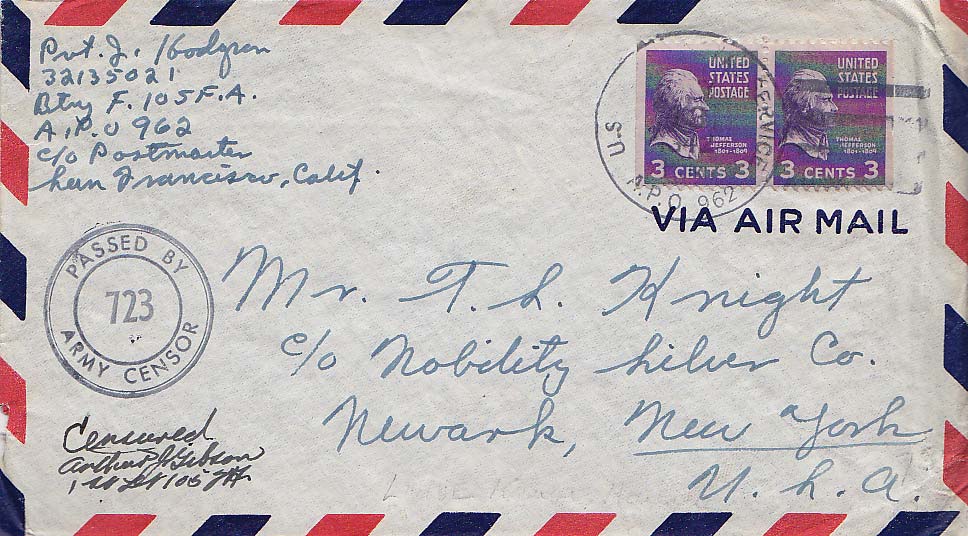 Pvt. J. Hodgren
32135021
Btry F. 105 F.A.
A.P.O 962
c/o Postmaster
San Francisco, Calif.
UNITED STATES POSTAGE
THOMAS JEFFERSON
1801-1809
3 CENTS 3
UNITED STATES POSTAGE
THOMAS JEFFERSON
1801-1809
3 CENTS 3
U.S. SERVICE
A.P.O. 962
VIA AIR MAIL
PASSED BY
723
ARMY CENSOR
Mr. T. S. Knight
c/o Nobility Silver Co.
Newark, New York
U. S. A.
Censured
Arthur J Gibson
1st Lt 105 FA